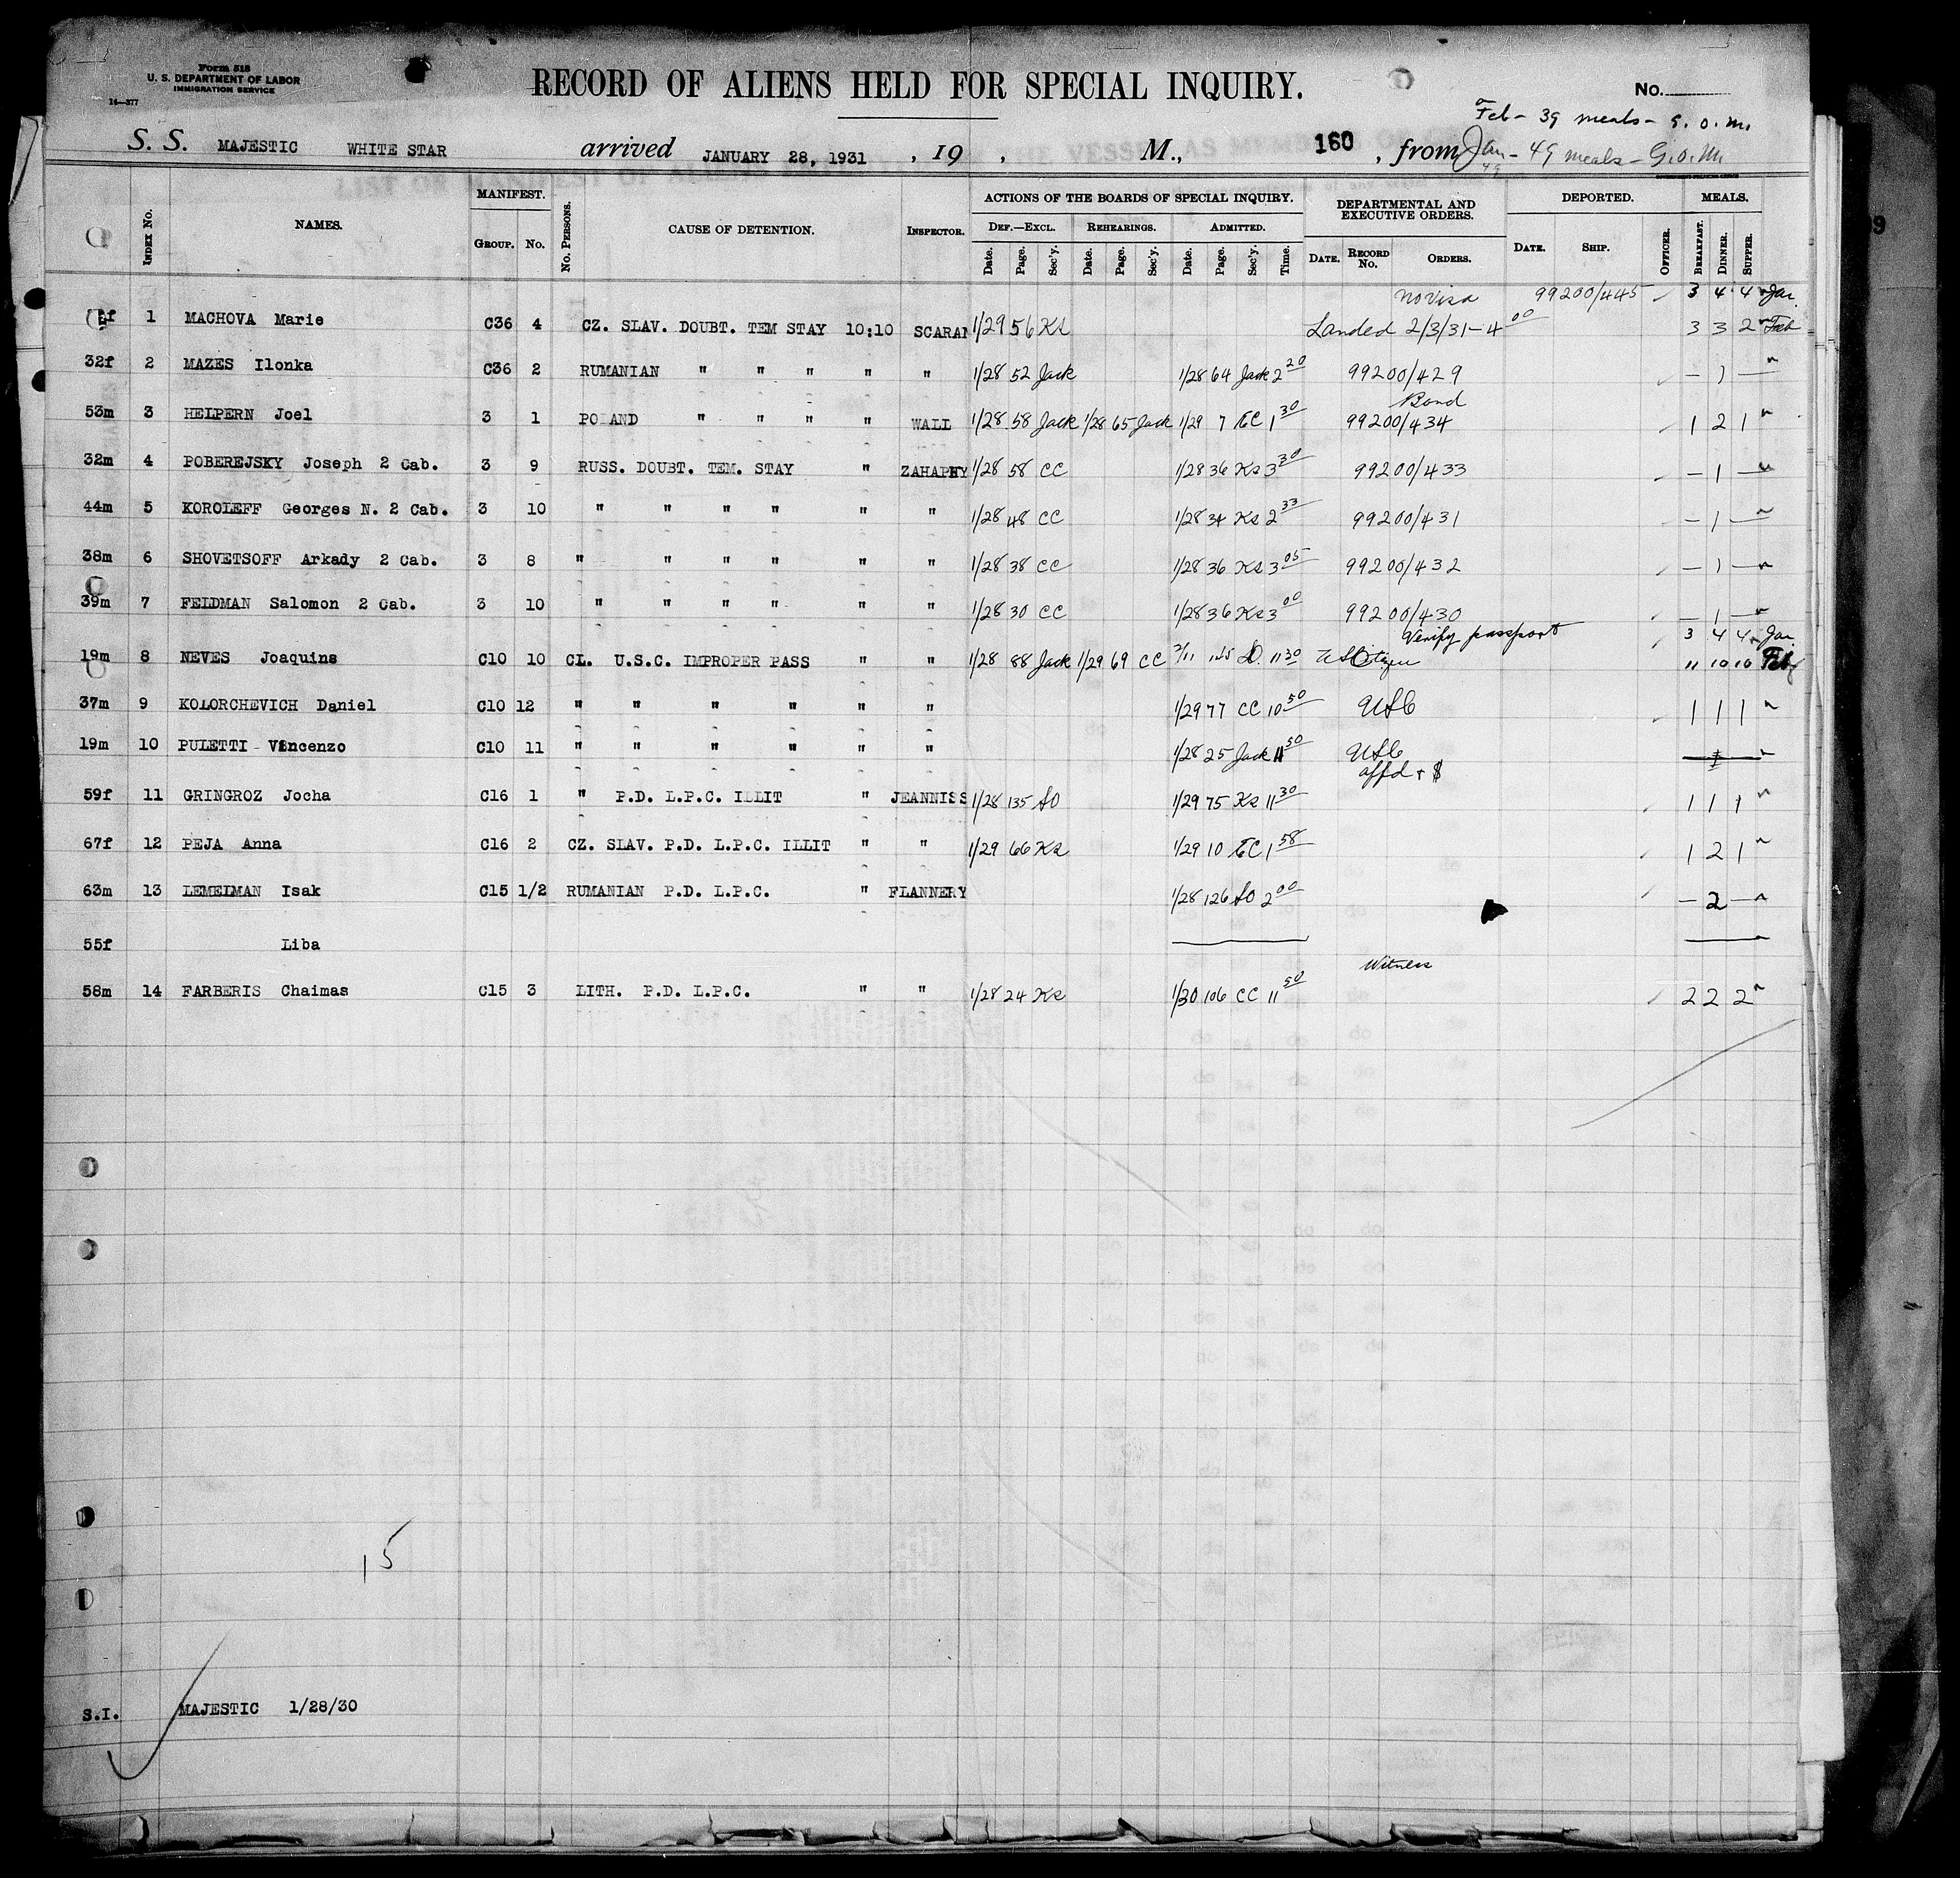 Form 518
U. S. DEPARTMENT OF LABOR
IMMIGRATION SERVICE
14—377
RECORD OF ALIENS HELD FOR SPECIAL INQUIRY.
No.
Feb - 39 meals - G.O.M.
S. S. MAJESTIC WHITE STAR arrived JANUARY 28, 1931 , 19 , M., 160 , from Jan - 49 meals - G.O.M.
49
INDEX No. NAMES. MANIFEST. GROUP. No. No. PERSONS. CAUSE OF DETENTION. INSPECTOR. ACTIONS OF THE BOARDS OF SPECIAL INQUIRY. DEF.—EXCL. Date. Page. Sec'y. REHEARINGS. Date. Page. Sec'y. ADMITTED. Date. Page. Sec'y. Time. DEPARTMENTAL AND EXECUTIVE ORDERS. DATE. RECORD No. ORDERS. DEPORTED. DATE. SHIP. OFFICER. MEALS. BREAKFAST. DINNER. SUPPER.
no visa 99200/445 3 4 4 " Jan.
f 1 MACHOVA Marie C36 4 CZ. SLAV. DOUBT. TEM STAY 10:10 SCARAN 1/29 56 Ks Landed 2/3/31 - 4 00 3 3 2 " Feb
32f 2 MAZES Ilonka C36 2 RUMANIAN " " " " " 1/28 52 Jack 1/28 64 Jack 2 20 99200/429 — 1 — "
Bond
53m 3 HELPERN Joel 3 1 POLAND " " " " WALL 1/28 58 Jack 1/28 65 Jack 1/29 7 EC 1 30 99200/434 1 2 1 "
32m 4 POBEREJSKY Joseph 2 Cab. 3 9 RUSS. DOUBT. TEM. STAY " ZAHAPHY 1/28 58 CC 1/28 36 Ks 3 30 99200/433 — 1 — "
44m 5 KOROLEFF Georges N. 2 Cab. 3 10 " " " " " " 1/28 48 CC 1/28 34 Ks 2 33 99200/431 — 1 — "
38m 6 SHOVETSOFF Arkady 2 Cab. 3 8 " " " " " " 1/28 38 CC 1/28 36 Ks 3 05 99200/432 — 1 — "
39m 7 FELDMAN Salomon 2 Cab. 3 10 " " " " " " 1/28 30 CC 1/28 36 Ks 3 00 99200/430 — 1 — "
Verify passport 3 4 4 " Jan
19m 8 NEVES Joaquins C10 10 CL. U.S.C. IMPROPER PASS " " 1/28 88 Jack 1/29 69 CC 2/11 11 30 US Citizen 11 10 10 Feb
37m 9 KOLORCHEVICH Daniel C10 12 " " " " " " 1/29 77 CC 10 50 USC 1 1 1 "
19m 10 PULETTI - Vincenzo C10 11 " " " " " " 1/28 25 Jack 11 50 USC — 1 — "
affd + $
59f 11 GRINGROZ Jocha C16 1 " P.D. L.P.C. ILLIT " JEANNISS 1/28 135 SO 1/29 75 Ks 11 30 1 1 1 "
67f 12 PEJA Anna C16 2 CZ. SLAV. P.D. L.P.C. ILLIT " " 1/29 66 Ks 1/29 10 EC 1 58 1 2 1 "
63m 13 LEMELMAN Isak C15 1/2 RUMANIAN P.D. L.P.C. " FLANNERY 1/28 126 SO 2 00 — 2 — "
55f Liba
Witness
58m 14 FARBERIS Chaimas C15 3 LITH. P.D. L.P.C. " " 1/28 24 Ks 1/30 106 CC 11 50 2 2 2 "
15
S.I. MAJESTIC 1/28/30